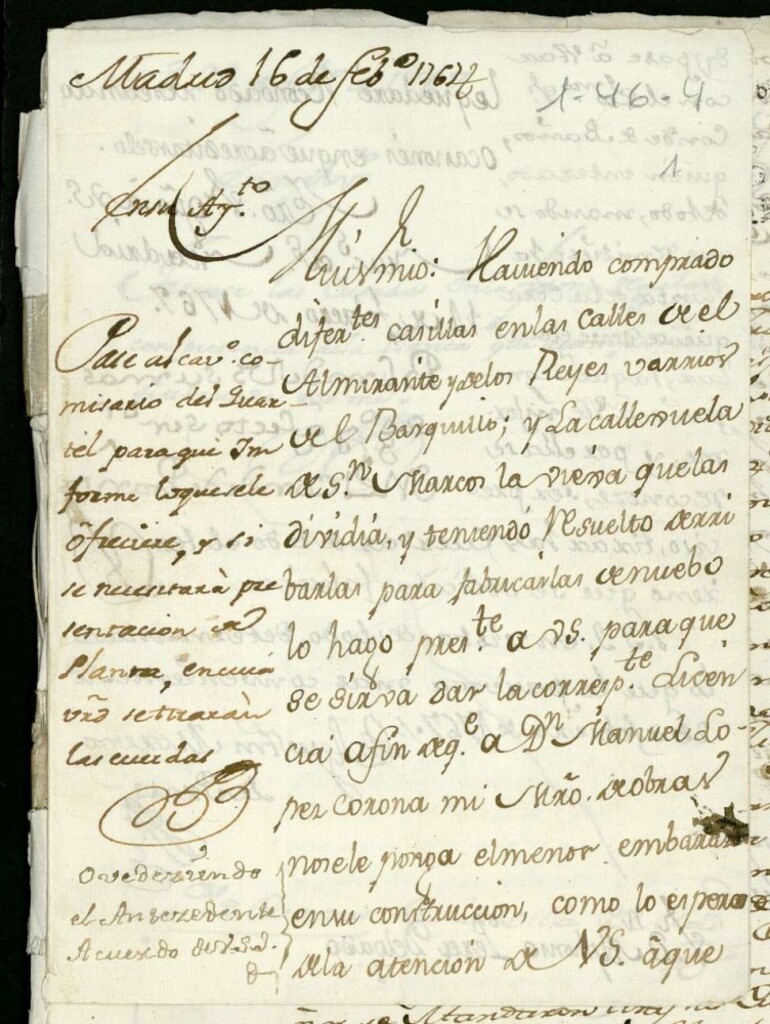 Madrid 16 de feb.º 1767
1-46-4
1
En su Ay.to
Muí s.r mio: Haviendo comprado
difer.tes casillas en las calles de el
Almirante y de los Reyes varrios
de el Barquillo; y La callexuela
de S.n Marcos la viexa que las
dividia, y teniendo resuelto derri
barlas para fabricarlas de nuebo
lo hago pres.te a VS. para que
se sirva dar la corresp.te Licen
cia a fin de q.e a D.n Manuel Lo-
pez Corona mi Mro. de obras
no se le ponga el menor embaraz
en su construccion, como lo espero
de la atencion de VS. â que
Pase al cav.º co-
misario del Quar
tel para que In
forme lo que se le
ôfreciere, y si
se necesitarà pre
sentacion de
Planta, en cuia
vrd se tiraràn
las cuerdas
Ovedeziendo
el Antezedente
Acuerdo de V.S.I.